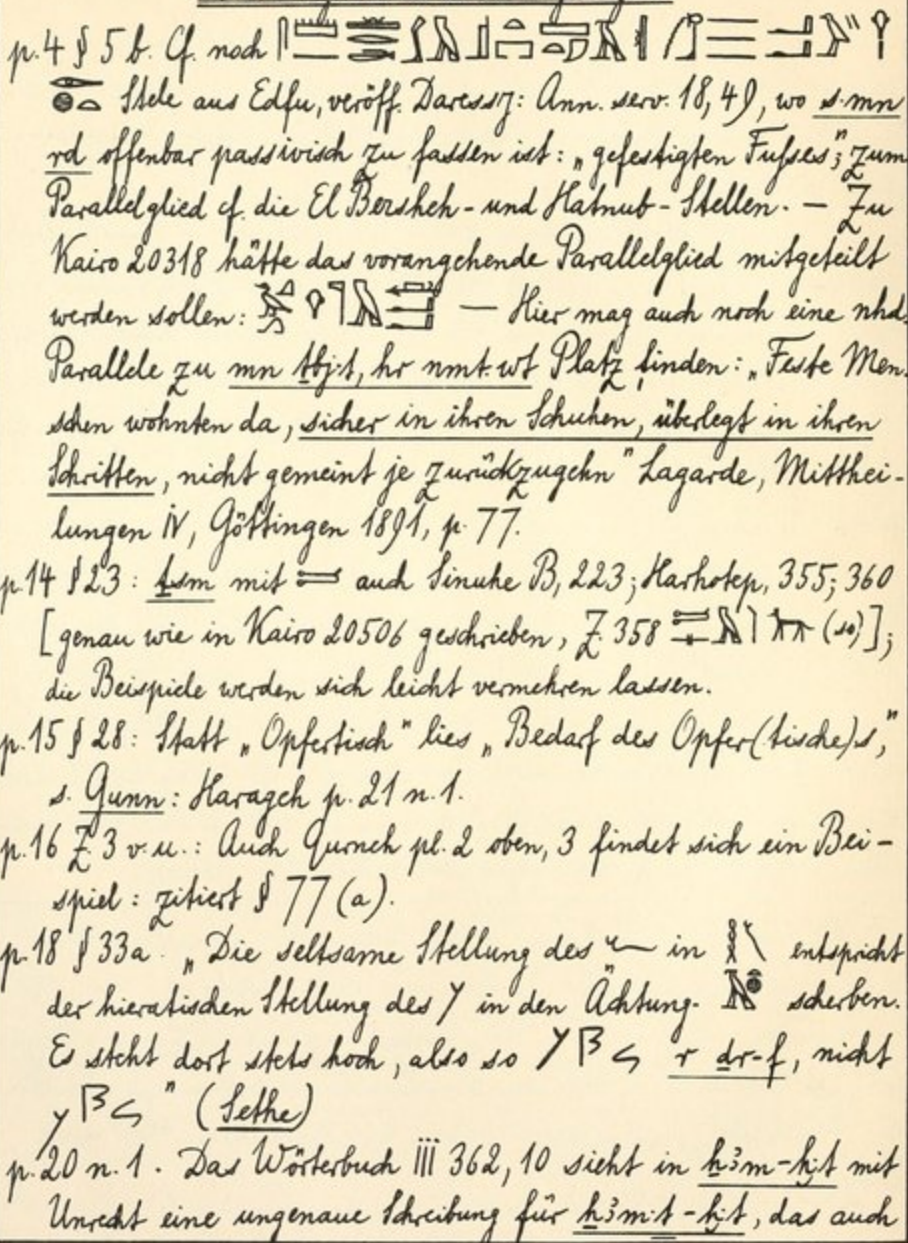 p. 4 § 5 b. Cf. noch
Stele aus Edfu, veröff. Daressy: Ann. serv. 18, 49), wo s·mn
rd offenbar passivisch zu fassen ist: „gefestigten Fußes“; zum
Parallelglied cf. die El Bersheh- und Hatnub-Stellen. — Zu
Kairo 20318 hätte das vorangehende Parallelglied mitgeteilt
werden sollen: — Hier mag auch noch eine nhd.
Parallele zu mn ṯbj·t, hr nmt·wt Platz finden: „Feste Men-
schen wohnten da, sicher in ihren Schuhen, überlegt in ihren
Schritten, nicht gemeint je zurückzugehn“ Lagarde, Mitthei-
lungen IV, Göttingen 1891, p. 77.
p. 14 § 23: ṯsm mit auch Sinuhe B, 223; Harhotep, 355; 360
[genau wie in Kairo 20506 geschrieben, Z. 358 (so)];
die Beispiele werden sich leicht vermehren lassen.
p. 15 § 28: Statt „Opfertisch“ lies „Bedarf des Opfer(tische)s“,
s. Gunn: Harageh p. 21 n. 1.
p. 16 Z. 3 v. u.: Auch Qurneh pl. 2 oben, 3 findet sich ein Bei-
spiel: zitiert § 77 (a).
p. 18 § 33a. „Die seltsame Stellung des in entspricht
der hieratischen Stellung des in den Ächtung- scherben.
Es steht dort stets hoch, also so r ḏr-f, nicht
“ (Sethe)
p. 20 n. 1. Das Wörterbuch III 362, 10 sieht in ẖꜣm-ẖj·t mit
Unrecht eine ungenaue Schreibung für ẖꜣm·t-ẖj·t, das auch